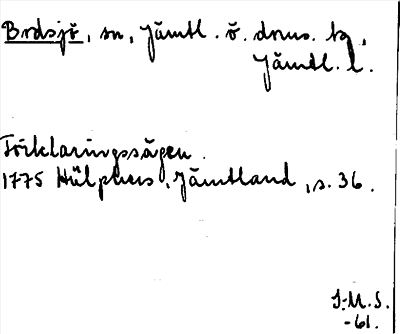 Brdsjö, sn, Jämtl. ö. doms. tg,
Jämtl. l.
Förklaringssägen.
1775 Hülphers, Jämtland, s. 36.
I.M.S.
-61.